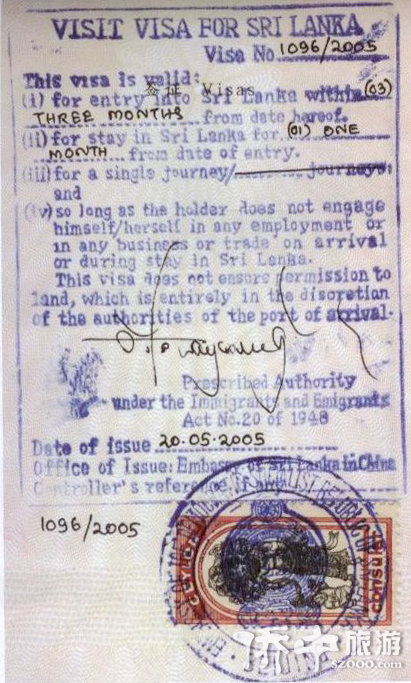 VISIT VISA FOR SRI LANKA
Visa No. 1096/2005
This visa is valid:
签证 Visas
(i) for entry into Sri Lanka within (03)
THREE MONTHS from date hereof.
(ii) for stay in Sri Lanka for (01) ONE
MONTH from date of entry.
(iii) for a single journey/ journeys;
and
(iv) so long as the holder does not engage
himself/herself in any employment or
in any business or trade on arrival
or during stay in Sri Lanka.
This visa does not ensure permission to
land, which is entirely in the discretion
of the authorities of the port of arrival.
Prescribed Authority
under the Immigrants and Emigrants
Act No.20 of 1948
Date of issue 20.05.2005
Office of Issue: Embassy of Sri Lanka in China
Controller's reference if any
1096/2005
consular
侨中旅游
sz000.com